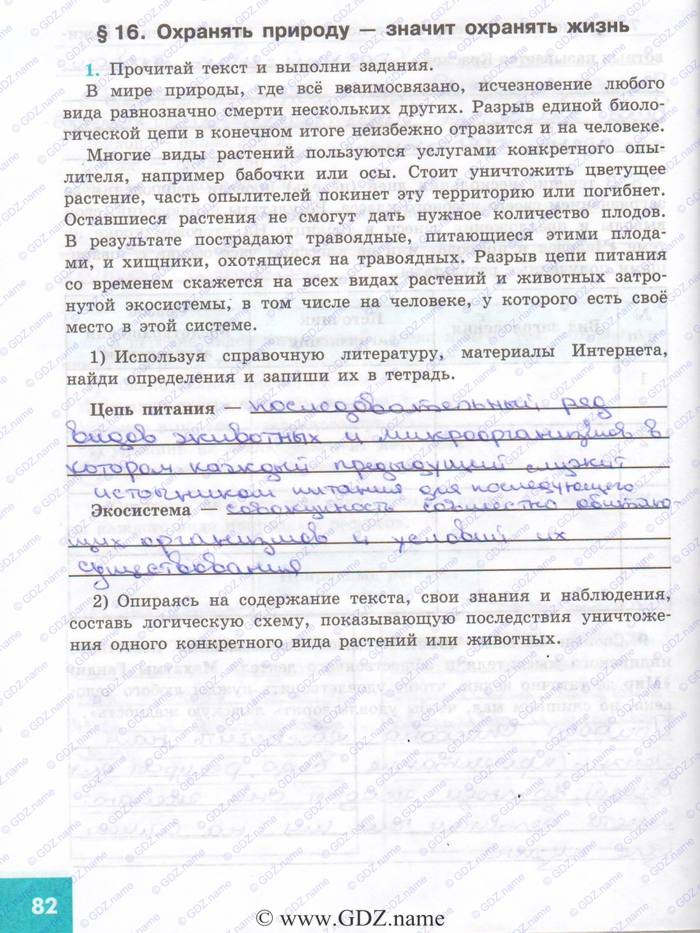 § 16. Охранять природу — значит охранять жизнь
1. Прочитай текст и выполни задания.
В мире природы, где всё взаимосвязано, исчезновение любого
вида равнозначно смерти нескольких других. Разрыв единой биоло-
гической цепи в конечном итоге неизбежно отразится и на человеке.
Многие виды растений пользуются услугами конкретного опы-
лителя, например бабочки или осы. Стоит уничтожить цветущее
растение, часть опылителей покинет эту территорию или погибнет.
Оставшиеся растения не смогут дать нужное количество плодов.
В результате пострадают травоядные, питающиеся этими плода-
ми, и хищники, охотящиеся на травоядных. Разрыв цепи питания
со временем скажется на всех видах растений и животных затро-
нутой экосистемы, в том числе на человеке, у которого есть своё
место в этой системе.
1) Используя справочную литературу, материалы Интернета,
найди определения и запиши их в тетрадь.
Цепь питания — последовательный ряд
видов животных и микроорганизмов в
котором каждый предыдущий служит
источником питания для последующего
Экосистема — совокупность совместно обитаю
щих организмов и условий их
существования
2) Опираясь на содержание текста, свои знания и наблюдения,
составь логическую схему, показывающую последствия уничтоже-
ния одного конкретного вида растений или животных.
82
© www.GDZ.name
© GDZ.name